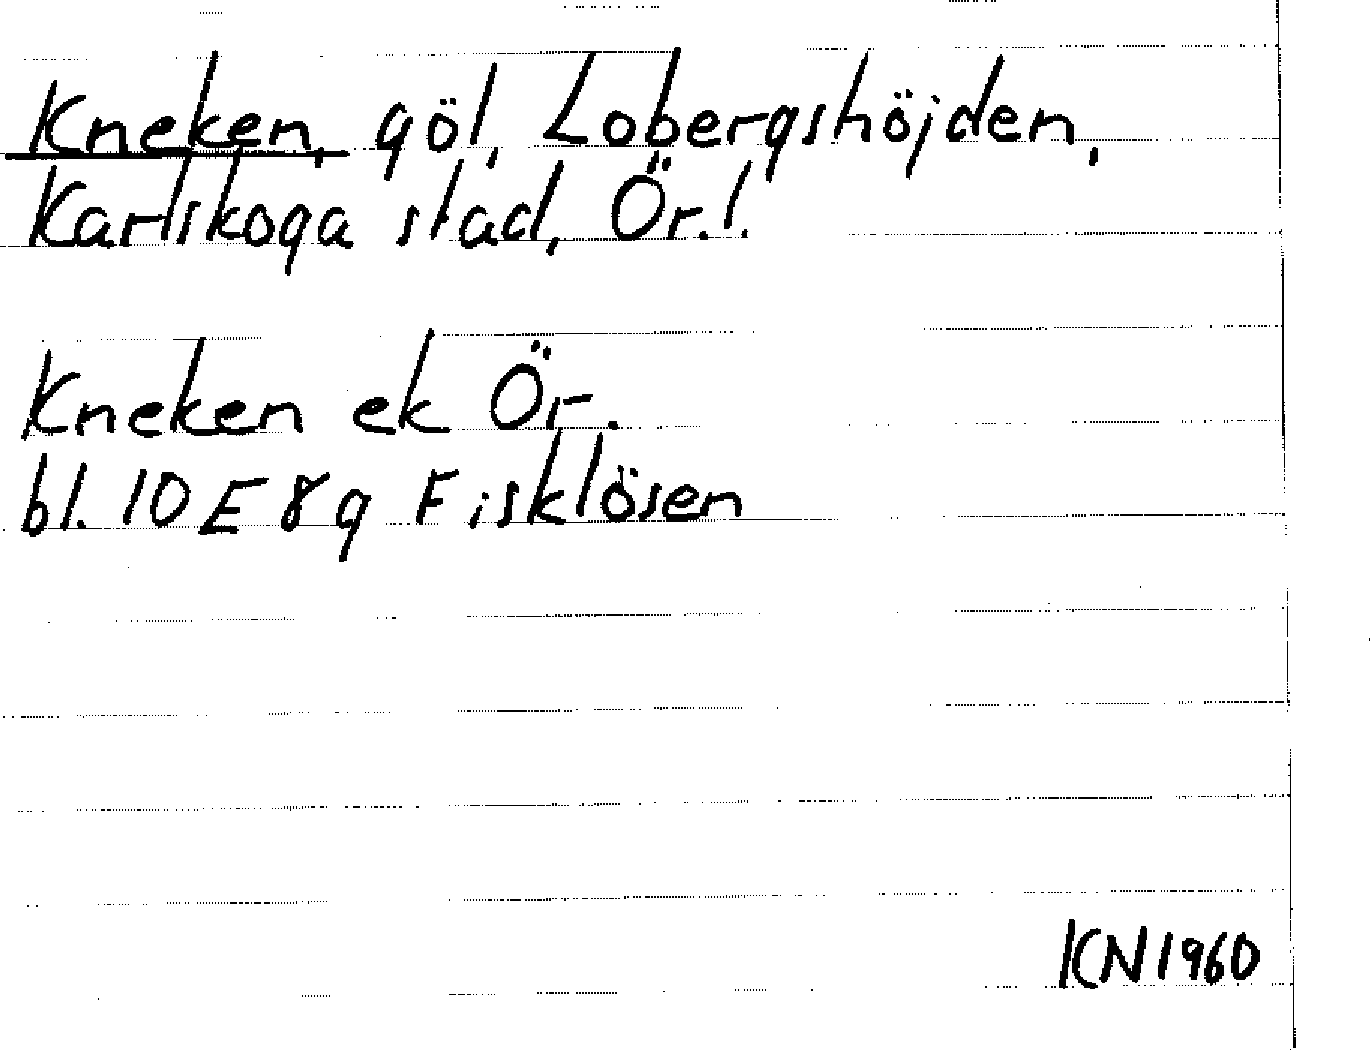 Kneken, göl, Lobergshöjden,
Karlskoga stad, Ör.l.
Kneken ek Ör.
bl. 10 E 8 g Fisklösen
KN 1960